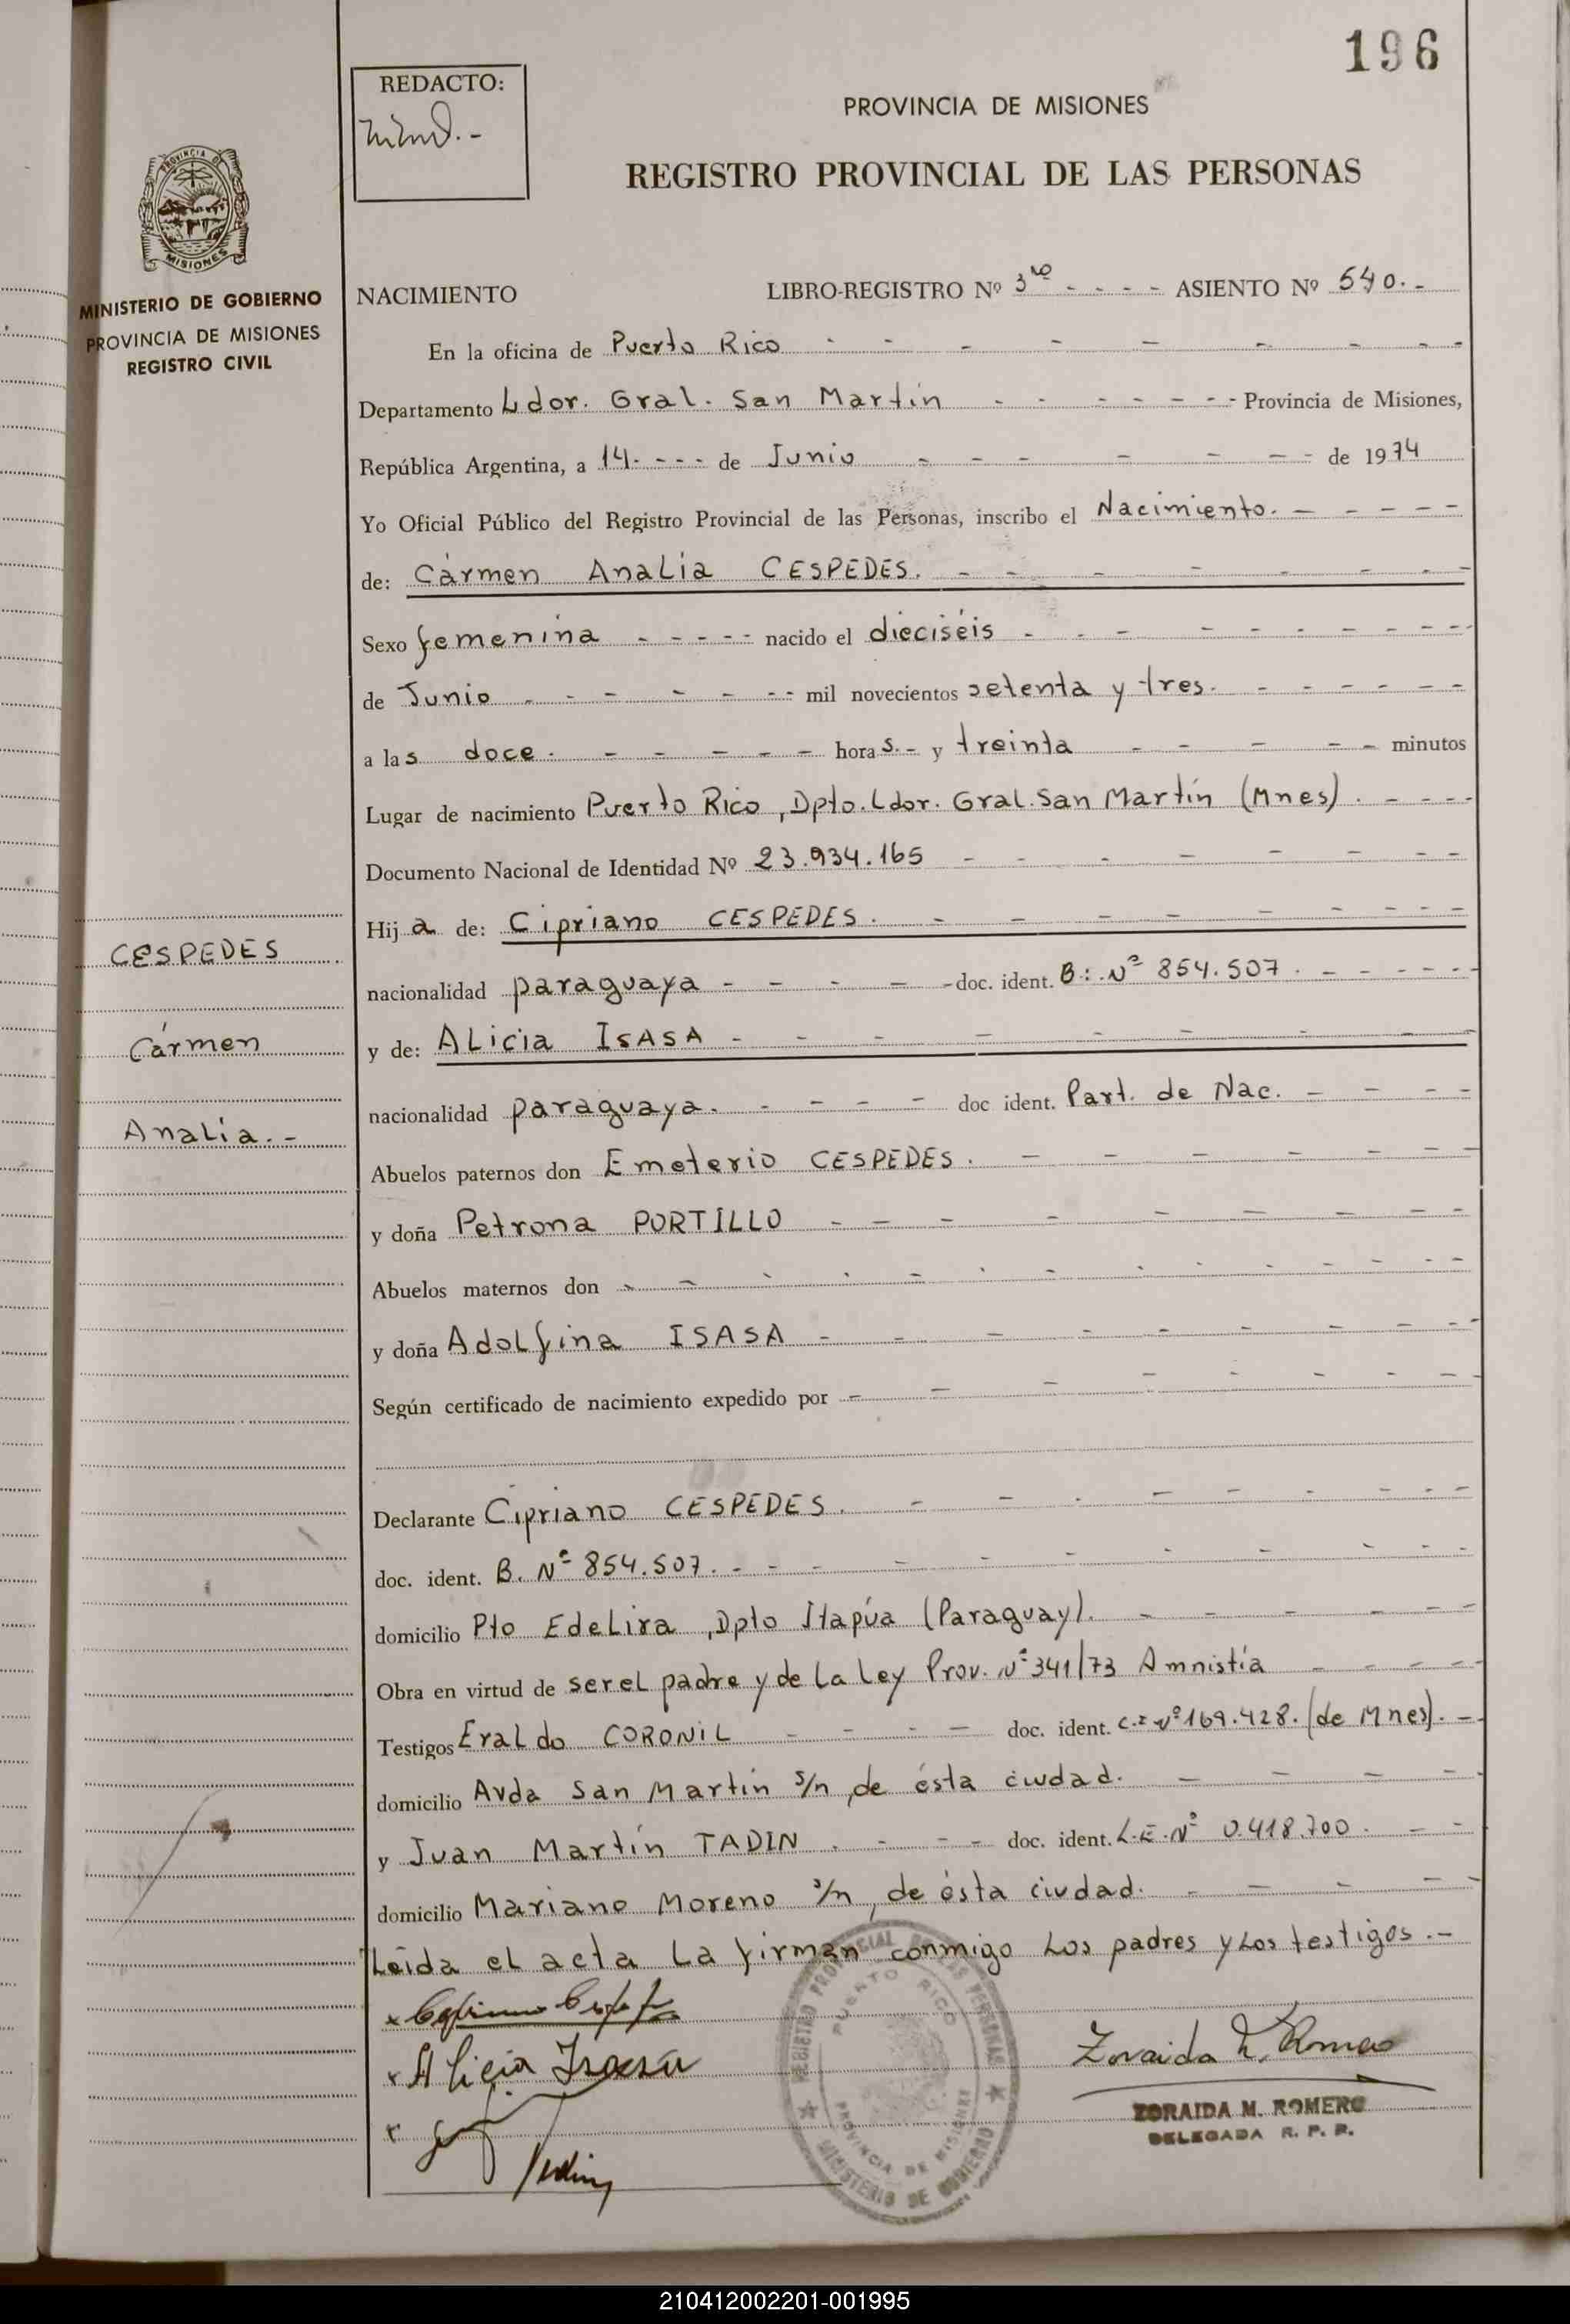 196
REDACTO:
PROVINCIA DE MISIONES
REGISTRO PROVINCIAL DE LAS PERSONAS
PROVINCIA DE
MISIONES
MINISTERIO DE GOBIERNO
PROVINCIA DE MISIONES
REGISTRO CIVIL
NACIMIENTO LIBRO-REGISTRO Nº 3º - - - - ASIENTO Nº 540.-
En la oficina de Puerto Rico - - - - - - - -
Departamento Ldor. Gral. San Martín - - - - - - - Provincia de Misiones,
República Argentina, a 14. - - - de Junio - - - - - - - de 1974
Yo Oficial Público del Registro Provincial de las Personas, inscribo el Nacimiento. - - - - -
de: Cármen Analía CESPEDES. - - - - - - -
Sexo femenina - - - - - nacido el dieciséis - - - - - - - - - -
de Junio - - - - - - - mil novecientos setenta y tres. - - - - - -
a las doce. - - - - - horas.- y treinta - - - - - minutos
Lugar de nacimiento Puerto Rico, Dpto. Ldor. Gral. San Martín (Mnes). - - - -
Documento Nacional de Identidad Nº 23.934.165 - - - - - - - -
Hija de: Cipriano CESPEDES. - - - - - - - -
CESPEDES
nacionalidad paraguaya - - - - - doc. ident. B: Nº 854.507. - - - - -
Cármen
y de: Alicia ISASA - - - - - - -
nacionalidad paraguaya. - - - - - doc ident. Part. de Nac. - - - -
Analía.-
Abuelos paternos don Emeterio CESPEDES. - - - - - - -
y doña Petrona PORTILLO - - - - - - - - -
Abuelos maternos don - - - - - - - - - - - - - -
y doña Adolfina ISASA - - - - - - - - - -
Según certificado de nacimiento expedido por - - - - - - - -
Declarante Cipriano CESPEDES. - - - - - - - - -
doc. ident. B. Nº 854.507. - - - - - - - - - -
domicilio Pto Edelira, Dpto Itapúa (Paraguay). - - - - - -
Obra en virtud de ser el padre y de la Ley Prov. Nº 341/73 Amnistía - - - - -
Testigos Eraldo CORONIL - - - - doc. ident. C.I Nº 169.428. (de Mnes). -
domicilio Avda San Martín s/n, de ésta ciudad. - - - -
y Juan Martín TADIN. - - - doc. ident. L.E. Nº 0.418.700. - -
domicilio Mariano Moreno s/n, de ésta ciudad. - - - - -
Leída el acta la firman conmigo los padres y los testigos.-
x Alicia Isasa
Zoraida M. Romero
ZORAIDA M. ROMERO
DELEGADA R. P. P.
REGISTRO PROVINCIAL DE LAS PERSONAS
PUERTO RICO
PROVINCIA DE MISIONES
MINISTERIO DE GOBIERNO
210412002201-001995